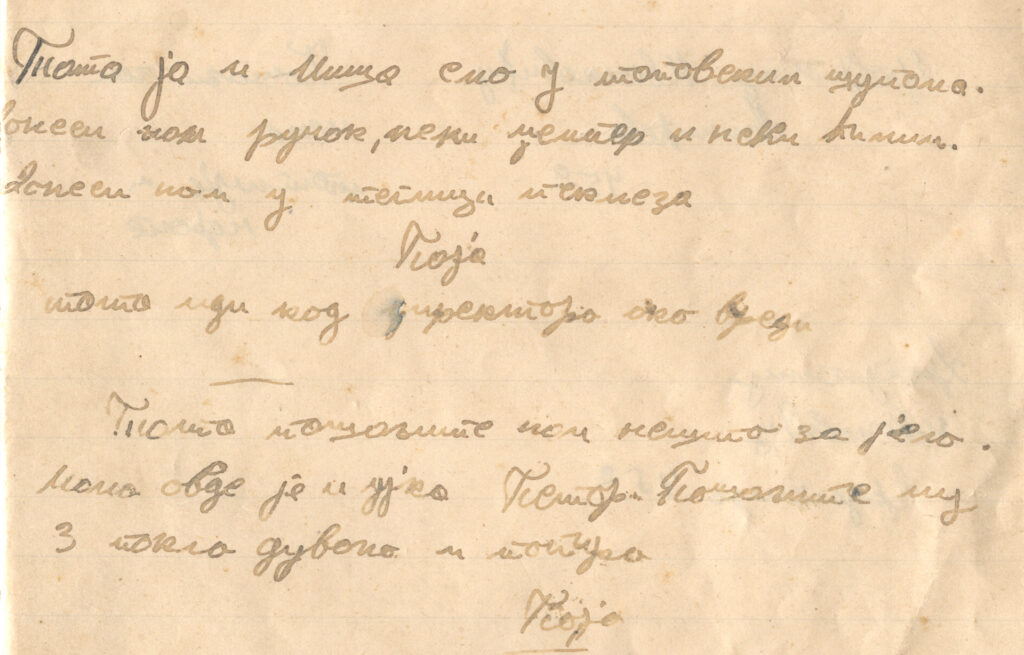 Тата ја и Миша смо у топовским шупама.
Донеси нам ручак, неки џемпер и неки ћилим.
Донеси нам у теглици пекмеза
Која
тата иди код директора ако вреди
Тата пошаљите нам нешто за јело.
Мама овде је и ујка Петар. Пошаљите му
3 пакла дувана и папира
Која